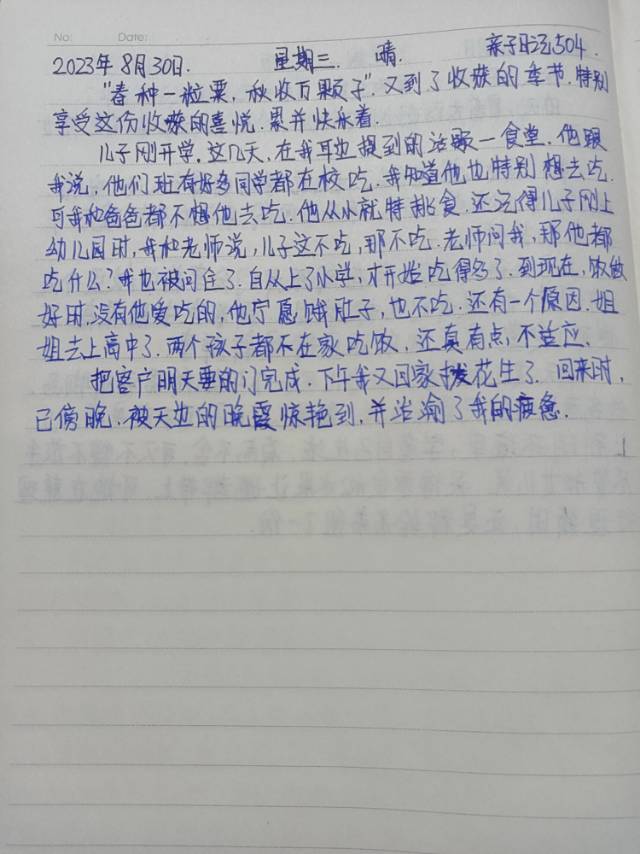 No: Date:
2023年8月30日. 星期三. 晴. 亲子日记504.
"春种一粒粟,秋收万颗子".又到了收获的季节.特别
享受这份收获的喜悦.累并快乐着.
儿子刚开学.这几天,在我耳边提到的话题一食堂.他跟
我说,他们班有好多同学都在校吃.我知道他也特别想去吃.
可我和爸爸都不想他去吃.他从小就特挑食.还记得儿子刚上
幼儿园时,我和老师说,儿子这不吃,那不吃.老师问我,那他都
吃什么?我也被问住了.自从上了小学,才开始吃得多了.到现在,饭做
好时,没有他爱吃的,他宁愿饿肚子,也不吃.还有一个原因.姐
姐去上高中了.两个孩子都不在家吃饭,还真有点,不适应.
把客户明天要的门完成.下午我又回家拔花生了.回来时,
已傍晚.被天边的晚霞惊艳到,并治愈了我的疲惫.